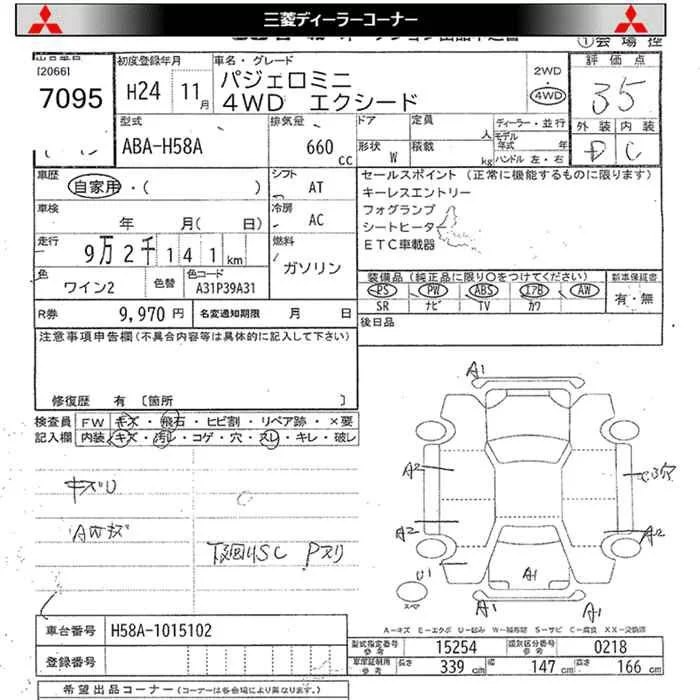 三菱ディーラーコーナー
①会場控
[2066]
7095
初度登録年月
H24 11月
車名・グレード
パジェロミニ
4WD エクシード
2WD
・
4WD
評価点
3.5
外装 内装
D C
型式
ABA-H58A
排気量
660 cc
ドア
定員
人
形状 W
積載
kg
ディーラー・並行
モデル
年式 年
ハンドル 左・右
車歴
自家用・( )
シフト
AT
車検
年 月( 日)
冷房
AC
走行
9万2千141km
燃料
ガソリン
色
ワイン2
色替
色コード
A31P39A31
R券 9,970 円
名変通知期限 月 日
セールスポイント (正常に機能するものに限ります)
キーレスエントリー
フォグランプ
シートヒーター
ETC車載器
装備品(純正品に限り〇をつけてください)
新車保証書
PS PW ABS エアB AW
SR ナビ TV カワ
有・無
後日品
注意事項申告欄(不具合内容等は具体的に記入して下さい)
修復歴 有 [箇所 ]
検査員
記入欄
FW キズ・飛石・ヒビ割・リペア跡・×要
内装 キズ・汚レ・コゲ・穴・スレ・キレ・破レ
キズU
AWキズ
下廻りSC Pスリ
A1
A2
A2
U1
A1
A1
A1
A2
スペア
A-キズ E-エクボ U-凹み W-補修跡 S-サビ C-腐食 XX-交換済
車台番号 H58A-1015102
登録番号
型式指定番号
参考
15254
類別区分番号
参考
0218
車庫証明用
参考
長さ 339 cm
幅 147 cm
高さ 166 cm
希望出品コーナー (コーナーは各会場により異なります。)